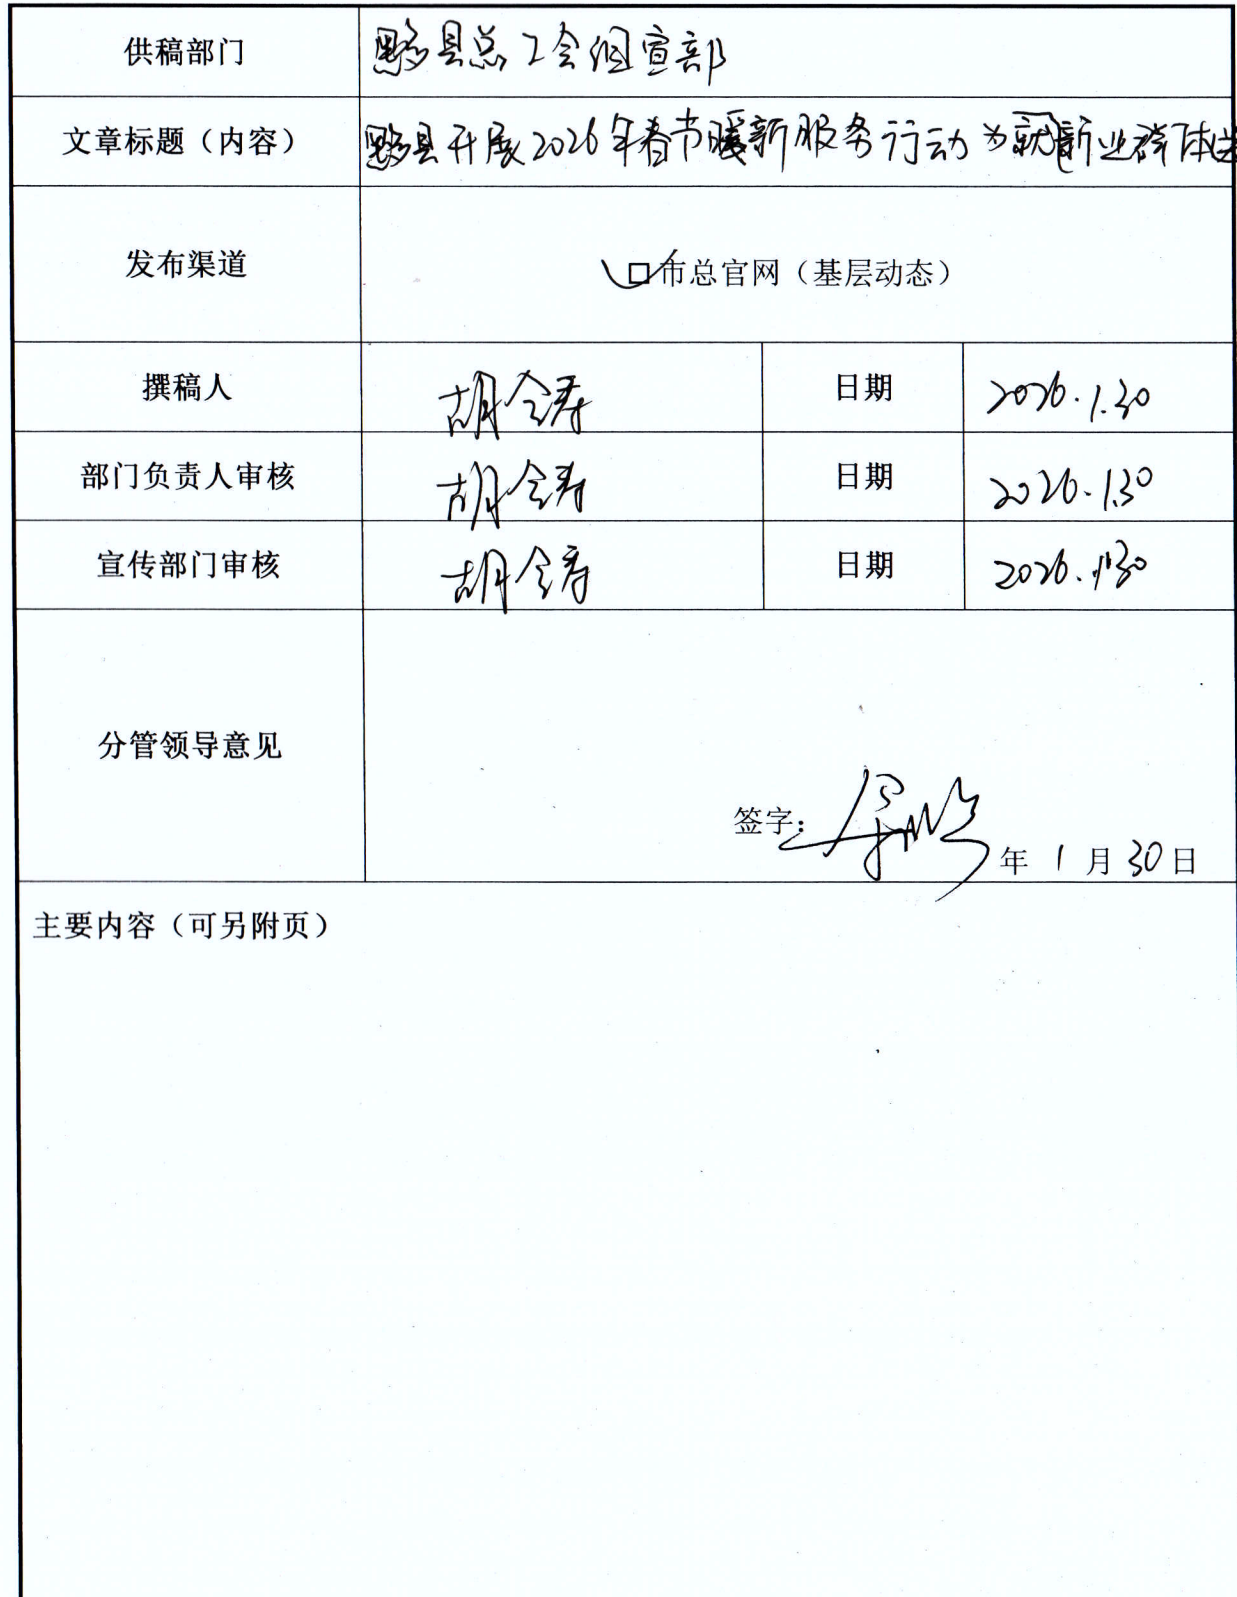 供稿部门 黟县总工会组宣部
文章标题（内容） 黟县开展2026年春节暖新服务行动为就新业群体送
发布渠道 □市总官网（基层动态）
撰稿人 胡会寿 日期 2026.1.30
部门负责人审核 胡会寿 日期 2026.1.30
宣传部门审核 胡会寿 日期 2026.1.30
分管领导意见
签字：
年 1 月 30 日
主要内容（可另附页）